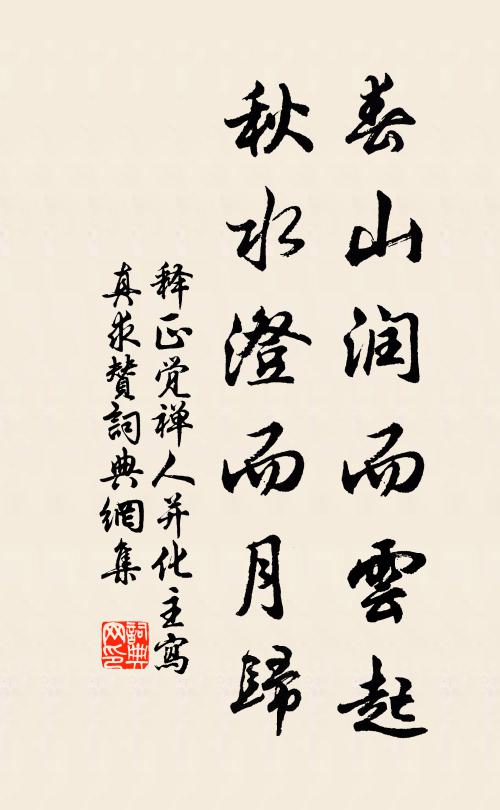 春山润而雲起
秋水澄而月歸
释正觉禅人并化主寫
真求赞詞典網集
詞典
网印